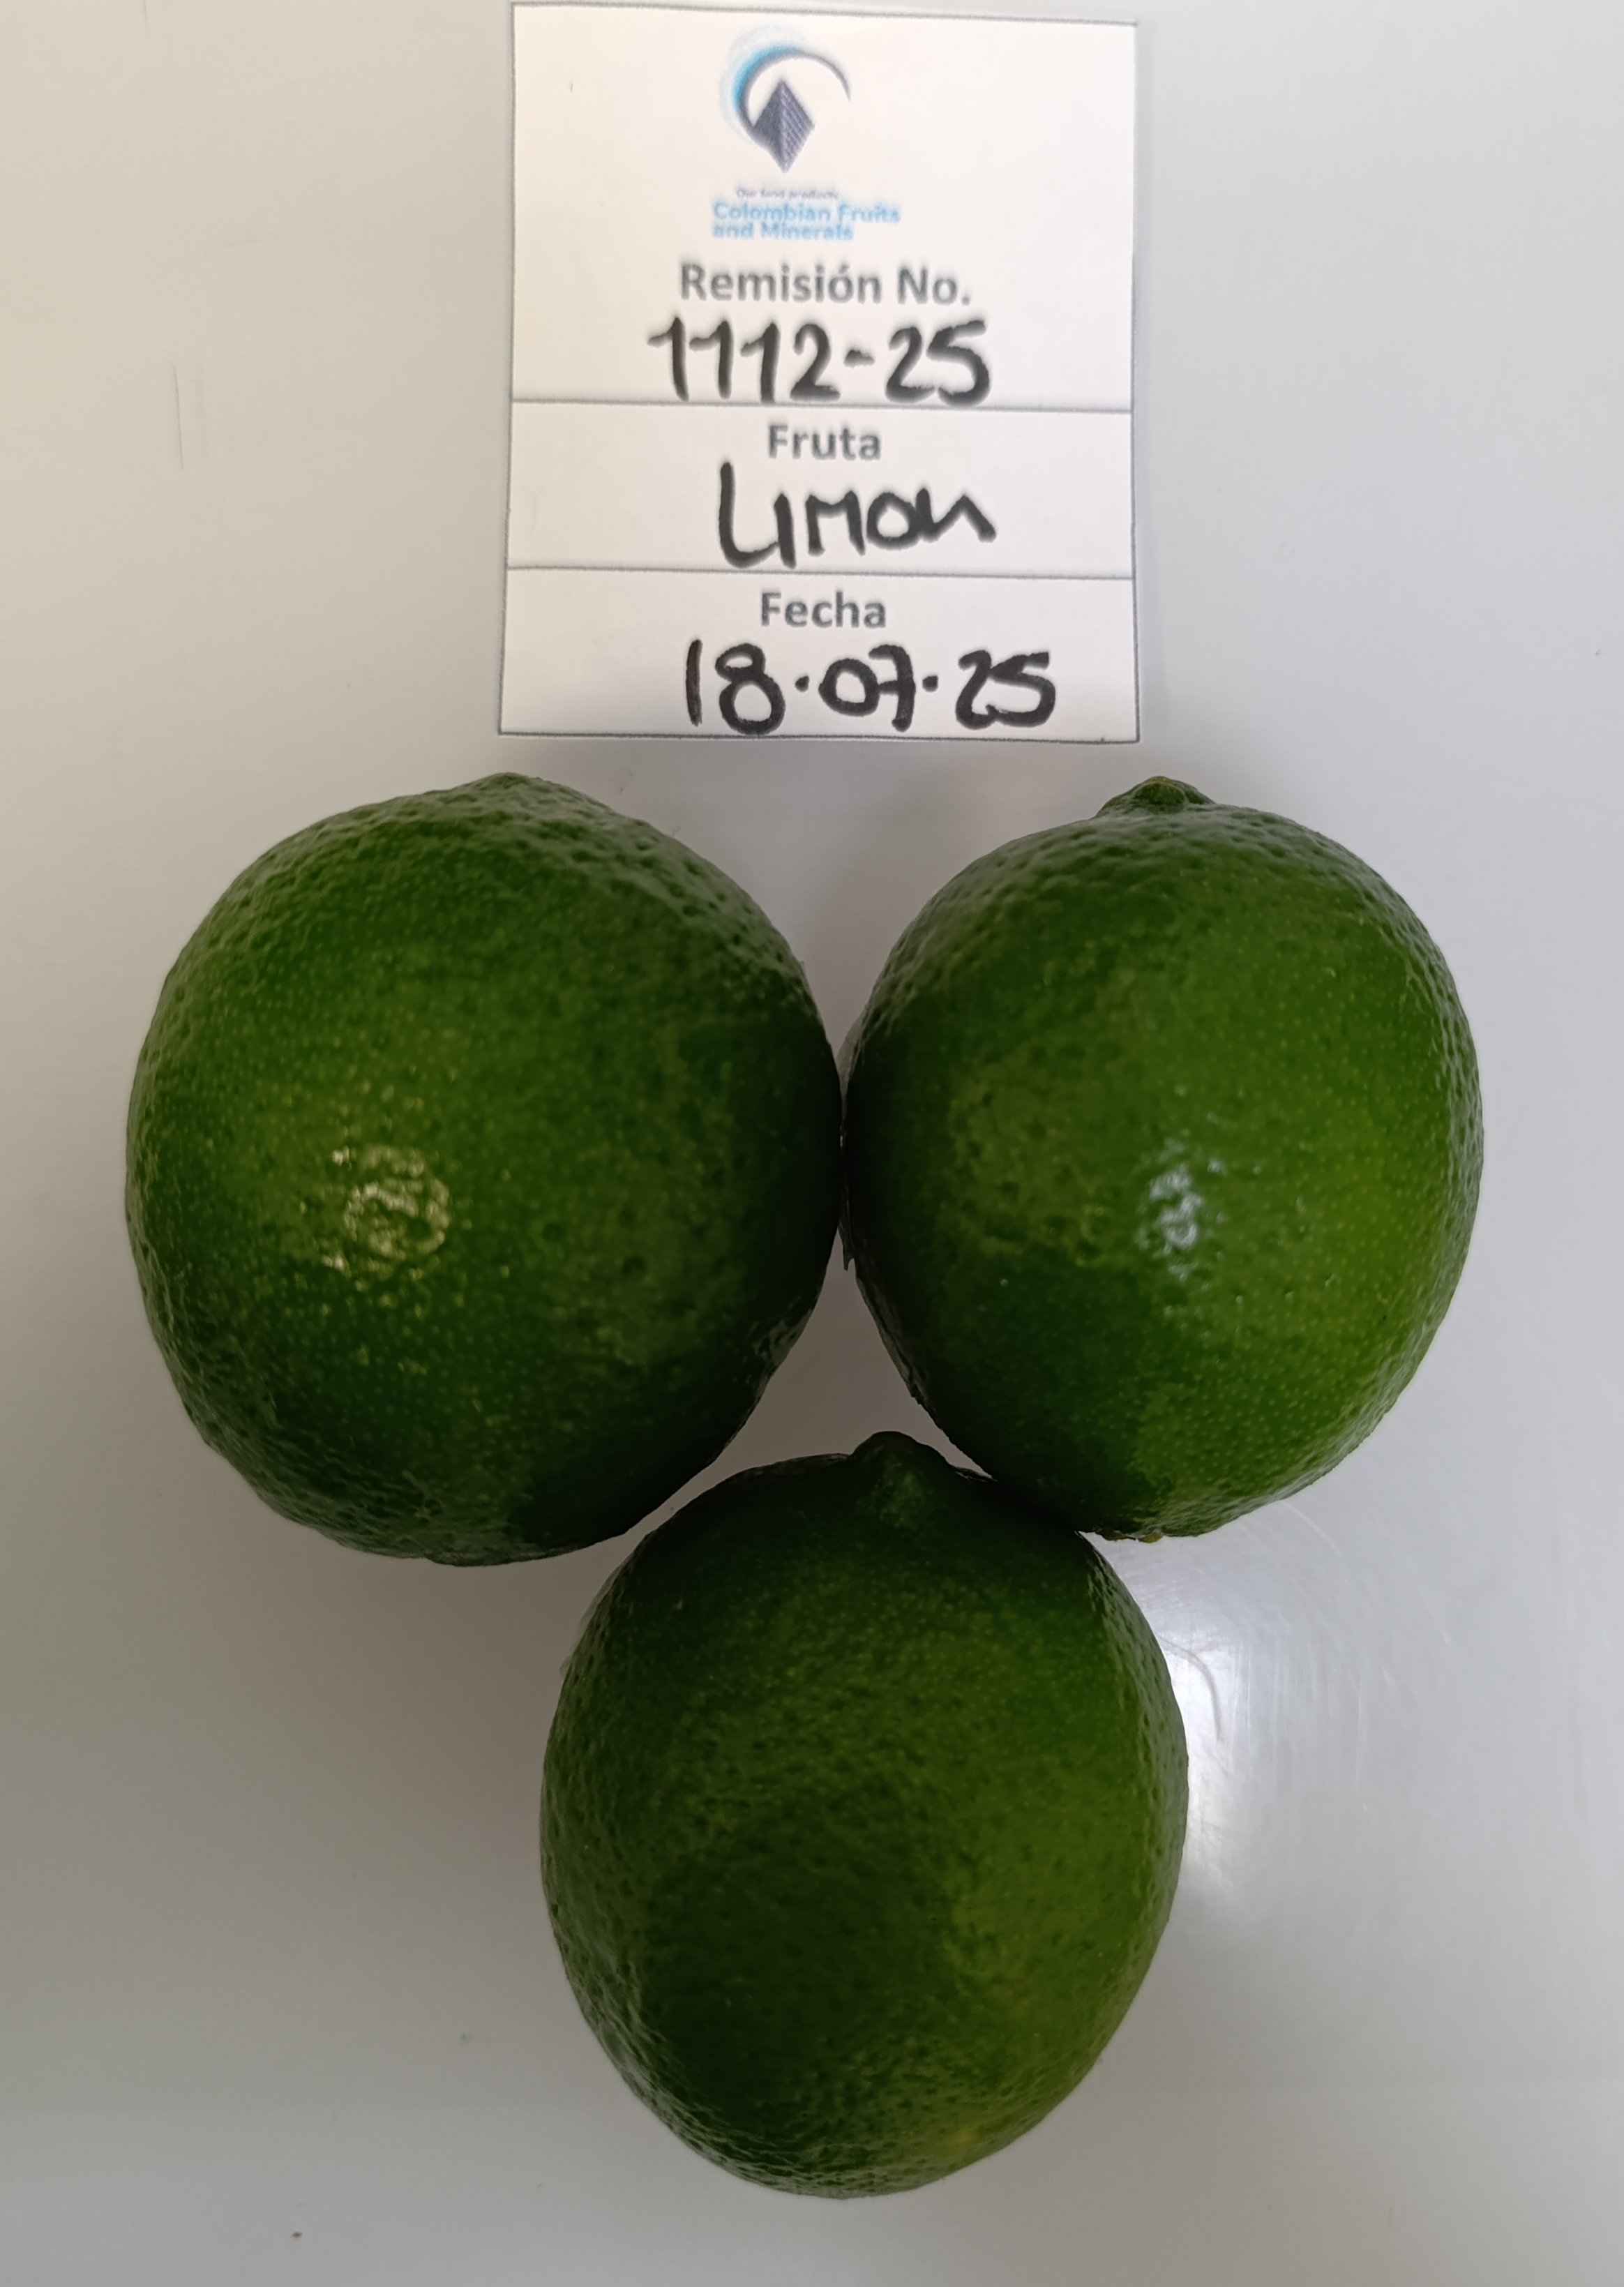 Our food products
Colombian Fruits
and Minerals
Remisión No.
1112-25
Fruta
LIMON
Fecha
18.07.25